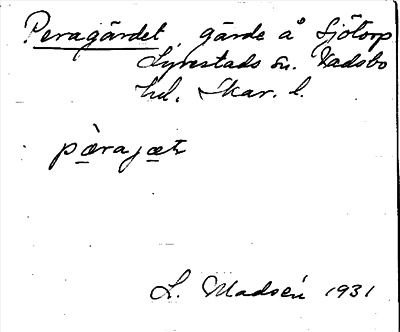 Peragärdet, gärde å Sjötorp
Lyrestads sn. Vadsbo
hd. Skar. l.
pæ̀rajæt
L. Madsén 1931